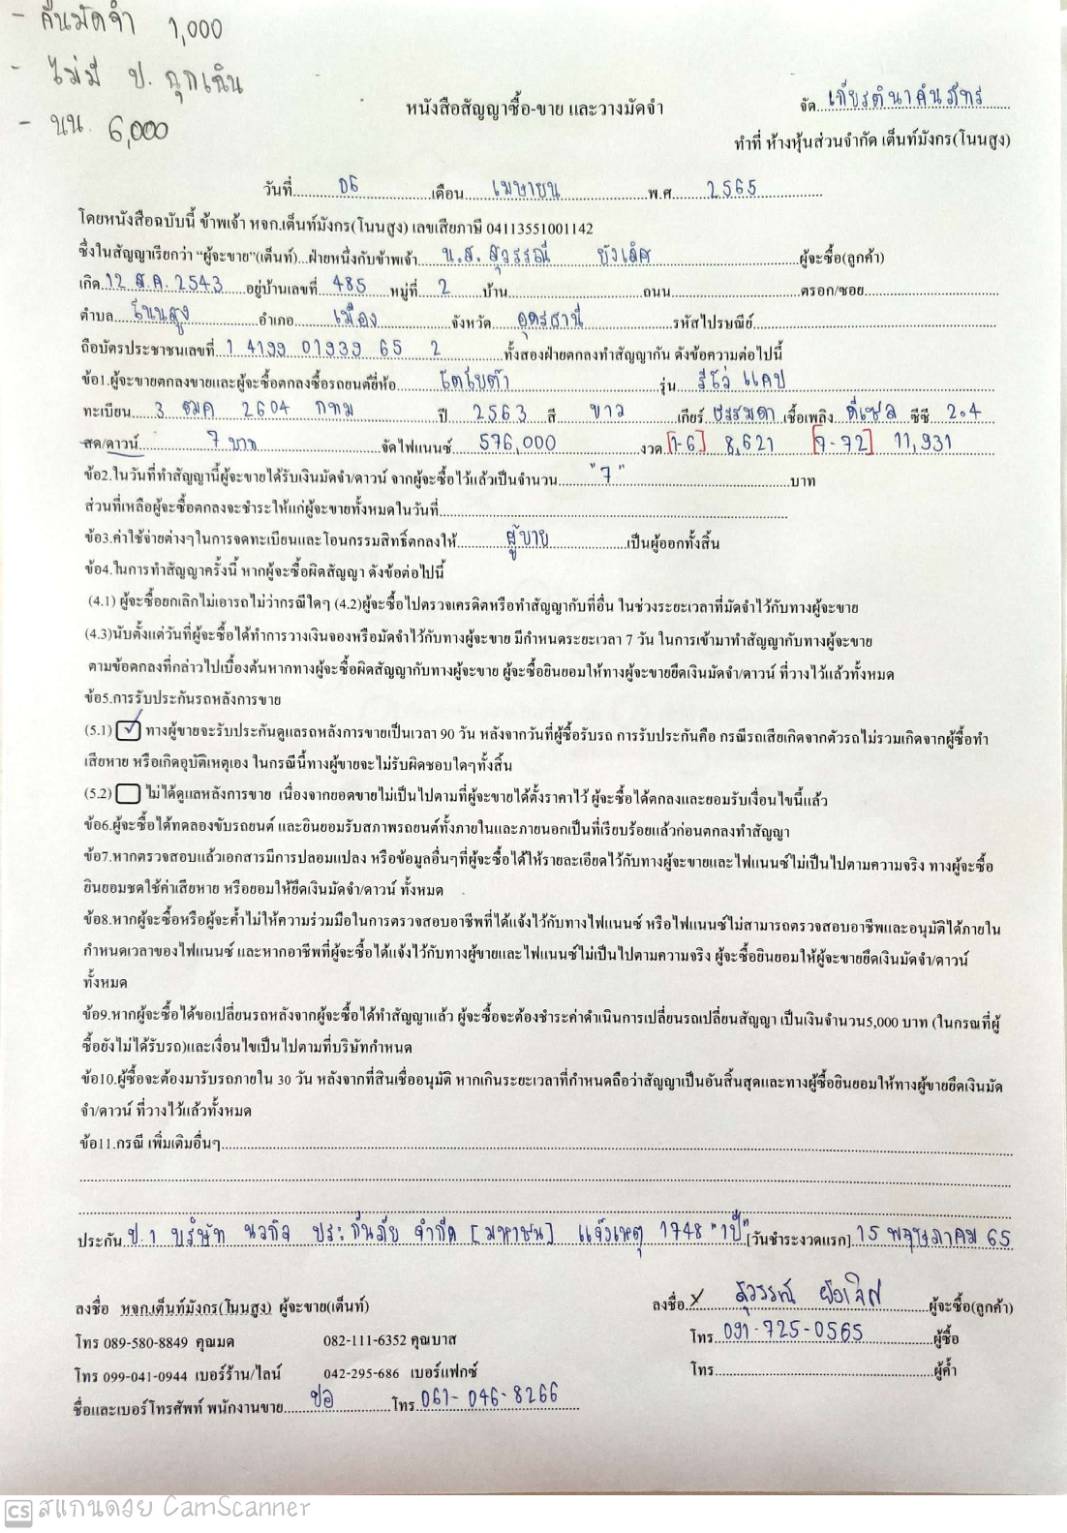 - คืนมัดจำ 1,000
- ไม่มี ป. ฉุกเฉิน
- นน. 6,000
หนังสือสัญญาซื้อ-ขาย และวางมัดจำ
จัด เกียรตินาคินภัทร
ทำที่ ห้างหุ้นส่วนจำกัด เต็นท์มังกร(โนนสูง)
วันที่ 06 เดือน เมษายน พ.ศ. 2565
โดยหนังสือฉบับนี้ ข้าพเจ้า หจก.เต็นท์มังกร(โนนสูง) เลขเสียภาษี 04113551001142
ซึ่งในสัญญาเรียกว่า "ผู้จะขาย"(เต็นท์)...ฝ่ายหนึ่งกับข้าพเจ้า น.ส. สุวรรณี ผู้จะซื้อ(ลูกค้า)
เกิด 12 ส.ค. 2543 อยู่บ้านเลขที่ 485 หมู่ที่ 2 บ้าน ถนน ตรอก/ซอย
ตำบล โนนสูง อำเภอ เมือง จังหวัด อุดรธานี รหัสไปรษณีย์
ถือบัตรประชาชนเลขที่ 1 4199 01939 65 2 ทั้งสองฝ่ายตกลงทำสัญญากัน ดังข้อความต่อไปนี้
ข้อ1.ผู้จะขายตกลงขายและผู้จะซื้อตกลงซื้อรถยนต์ยี่ห้อ โตโยต้า รุ่น รีโว่ แคป
ทะเบียน 3 ฒค 2604 กทม ปี 2563 สี ขาว เกียร์ ธรรมดา เชื้อเพลิง ดีเซล ซีซี 2.4
สด/ดาวน์ 7 บาท จัดไฟแนนซ์ 576,000 งวด [1-6] 8,621 [7-72] 11,931
ข้อ2.ในวันที่ทำสัญญานี้ผู้จะขายได้รับเงินมัดจำ/ดาวน์ จากผู้จะซื้อไว้แล้วเป็นจำนวน "7" บาท
ส่วนที่เหลือผู้จะซื้อตกลงจะชำระให้แก่ผู้จะขายทั้งหมดในวันที่
ข้อ3.ค่าใช้จ่ายต่างๆในการจดทะเบียนและโอนกรรมสิทธิ์ตกลงให้ ผู้ขาย เป็นผู้ออกทั้งสิ้น
ข้อ4.ในการทำสัญญาครั้งนี้ หากผู้จะซื้อผิดสัญญา ดังข้อต่อไปนี้
(4.1) ผู้จะซื้อยกเลิกไม่เอารถไม่ว่ากรณีใดๆ (4.2)ผู้จะซื้อไปตรวจเครดิตหรือทำสัญญากับที่อื่น ในช่วงระยะเวลาที่มัดจำไว้กับทางผู้จะขาย
(4.3)นับตั้งแต่วันที่ผู้จะซื้อได้ทำการวางเงินจองหรือมัดจำไว้กับทางผู้จะขาย มีกำหนดระยะเวลา 7 วัน ในการเข้ามาทำสัญญากับทางผู้จะขาย
ตามข้อตกลงที่กล่าวไปเบื้องต้นหากทางผู้จะซื้อผิดสัญญากับทางผู้จะขาย ผู้จะซื้อยินยอมให้ทางผู้จะขายยึดเงินมัดจำ/ดาวน์ ที่วางไว้แล้วทั้งหมด
ข้อ5.การรับประกันรถหลังการขาย
(5.1) ✓ ทางผู้ขายจะรับประกันดูแลรถหลังการขายเป็นเวลา 90 วัน หลังจากวันที่ผู้ซื้อรับรถ การรับประกันคือ กรณีรถเสียเกิดจากตัวรถไม่รวมเกิดจากผู้ซื้อทำ
เสียหาย หรือเกิดอุบัติเหตุเอง ในกรณีนี้ทางผู้ขายจะไม่รับผิดชอบใดๆทั้งสิ้น
(5.2) ไม่ได้ดูแลหลังการขาย เนื่องจากยอดขายไม่เป็นไปตามที่ผู้จะขายได้ตั้งราคาไว้ ผู้จะซื้อได้ตกลงและยอมรับเงื่อนไขนี้แล้ว
ข้อ6.ผู้จะซื้อได้ทดลองขับรถยนต์ และยินยอมรับสภาพรถยนต์ทั้งภายในและภายนอกเป็นที่เรียบร้อยแล้วก่อนตกลงทำสัญญา
ข้อ7.หากตรวจสอบแล้วเอกสารมีการปลอมแปลง หรือข้อมูลอื่นๆที่ผู้จะซื้อได้ให้รายละเอียดไว้กับทางผู้จะขายและไฟแนนซ์ไม่เป็นไปตามความจริง ทางผู้จะซื้อ
ยินยอมชดใช้ค่าเสียหาย หรือยอมให้ยึดเงินมัดจำ/ดาวน์ ทั้งหมด
ข้อ8.หากผู้จะซื้อหรือผู้จะค้ำไม่ให้ความร่วมมือในการตรวจสอบอาชีพที่ได้แจ้งไว้กับทางไฟแนนซ์ หรือไฟแนนซ์ไม่สามารถตรวจสอบอาชีพและอนุมัติได้ภายใน
กำหนดเวลาของไฟแนนซ์ และหากอาชีพที่ผู้จะซื้อได้แจ้งไว้กับทางผู้ขายและไฟแนนซ์ไม่เป็นไปตามความจริง ผู้จะซื้อยินยอมให้ผู้จะขายยึดเงินมัดจำ/ดาวน์
ทั้งหมด
ข้อ9.หากผู้จะซื้อได้ขอเปลี่ยนรถหลังจากผู้จะซื้อได้ทำสัญญาแล้ว ผู้จะซื้อจะต้องชำระค่าดำเนินการเปลี่ยนรถเปลี่ยนสัญญา เป็นเงินจำนวน5,000 บาท (ในกรณที่ผู้
ซื้อยังไม่ได้รับรถ)และเงื่อนไขเป็นไปตามที่บริษัทกำหนด
ข้อ10.ผู้ซื้อจะต้องมารับรถภายใน 30 วัน หลังจากที่สินเชื่ออนุมัติ หากเกินระยะเวลาที่กำหนดถือว่าสัญญาเป็นอันสิ้นสุดและทางผู้ซื้อยินยอมให้ทางผู้ขายยึดเงินมัด
จำ/ดาวน์ ที่วางไว้แล้วทั้งหมด
ข้อ11.กรณี เพิ่มเติมอื่นๆ
ประกัน ป.1 บริษัท นวกิจ ประกันภัย จำกัด [มหาชน] แจ้งเหตุ 1748 "1ปี" [วันชำระงวดแรก] 15 พฤษภาคม 65
ลงชื่อ หจก.เต็นท์มังกร(โนนสูง) ผู้จะขาย(เต็นท์)
ลงชื่อ X สุวรรณี ผู้จะซื้อ(ลูกค้า)
โทร 089-580-8849 คุณมด 082-111-6352 คุณบาส
โทร 091-725-0565 ผู้ซื้อ
โทร 099-041-0944 เบอร์ร้าน/ไลน์ 042-295-686 เบอร์แฟกซ์
โทร ผู้ค้ำ
ชื่อและเบอร์โทรศัพท์ พนักงานขาย ปอ โทร 061-046-8266
CS สแกนด้วย CamScanner